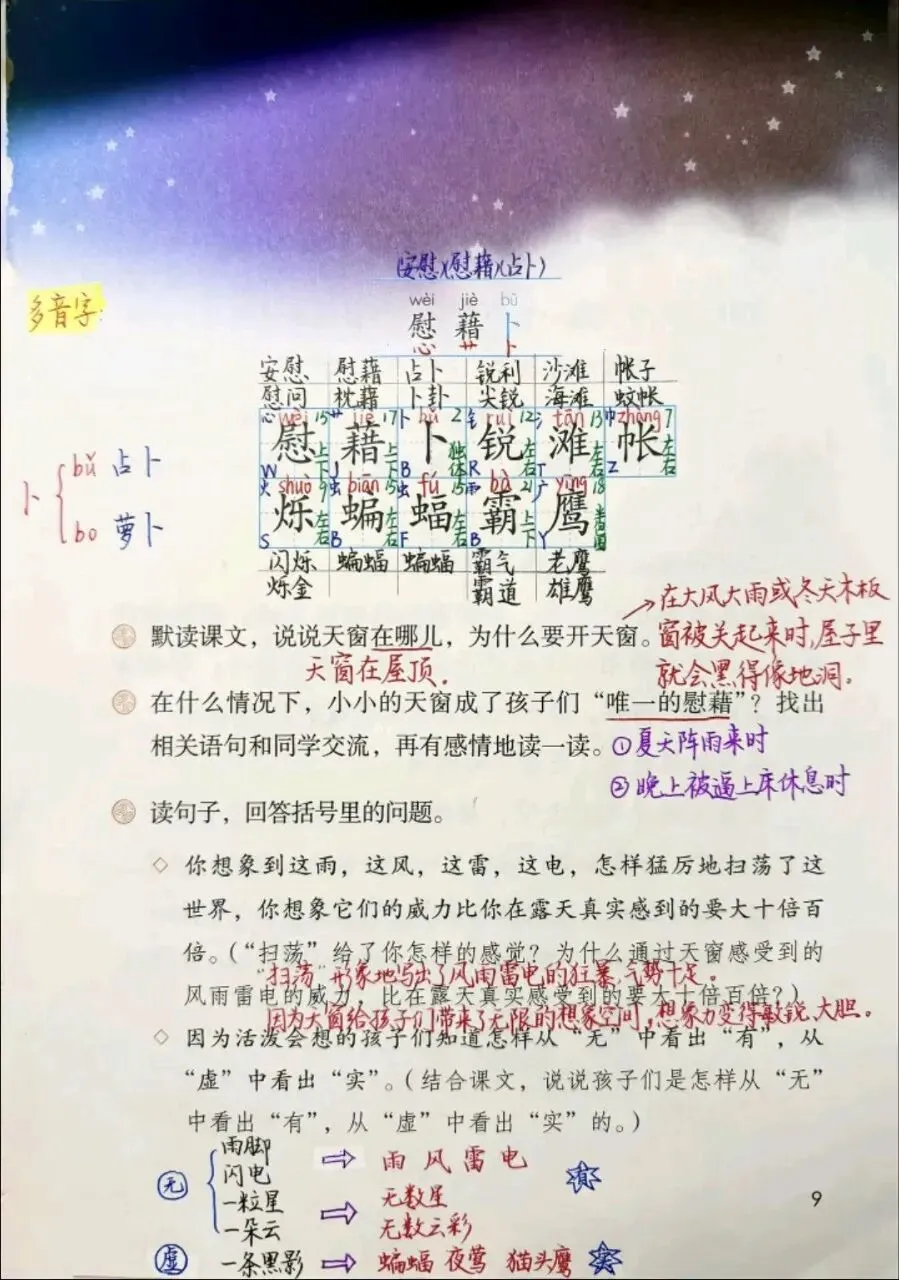 (安慰)(慰藉)(占卜)
wèi jiè bǔ
慰 藉 卜
心 艹 卜
多音字:
安慰 慰藉 占卜 锐利 沙滩 帐子
慰问 枕藉 卜卦 尖锐 海滩 蚊帐
心 wèi 15 艹 jiè 17 卜 bǔ 2 钅 ruì 12 氵 tān 13 巾 zhàng 7
慰 上下 藉 上下 卜 独体 锐 左右 滩 左右 帐 左右
W J B R T Z
火 shuò 9 虫 biān 15 虫 fú 15 雨 bà 21 广 yīng 18
烁 左右 蝙 左右 蝠 左右 霸 上下 鹰
S B F B Y
闪烁 蝙蝠 蝙蝠 霸气 老鹰
烁金 霸道 雄鹰
卜
bǔ 占卜
bo 萝卜
默读课文，说说天窗在哪儿，为什么要开天窗。
天窗在屋顶.
在大风大雨或冬天木板
窗被关起来时,屋子里
就会黑得像地洞。
在什么情况下，小小的天窗成了孩子们“唯一的慰藉”？找出
相关语句和同学交流，再有感情地读一读。
①夏天阵雨来时
②晚上被逼上床休息时
读句子，回答括号里的问题。
◇ 你想象到这雨，这风，这雷，这电，怎样猛厉地扫荡了这
世界，你想象它们的威力比你在露天真实感到的要大十倍百
倍。（“扫荡”给了你怎样的感觉？为什么通过天窗感受到的
“扫荡”形象地写出了风雨雷电的狂暴,气势十足。
风雨雷电的威力，比在露天真实感受到的要大十倍百倍？）
因为天窗给孩子们带来了无限的想象空间,想象力变得敏锐、大胆。
◇ 因为活泼会想的孩子们知道怎样从“无”中看出“有”，从
“虚”中看出“实”。（结合课文，说说孩子们是怎样从“无”
中看出“有”，从“虚”中看出“实”的。）
无
雨脚
闪电
一粒星
一朵云
雨 风 雷 电
无数星
无数云彩
有
虚 一条黑影 蝙蝠 夜莺 猫头鹰 实
9